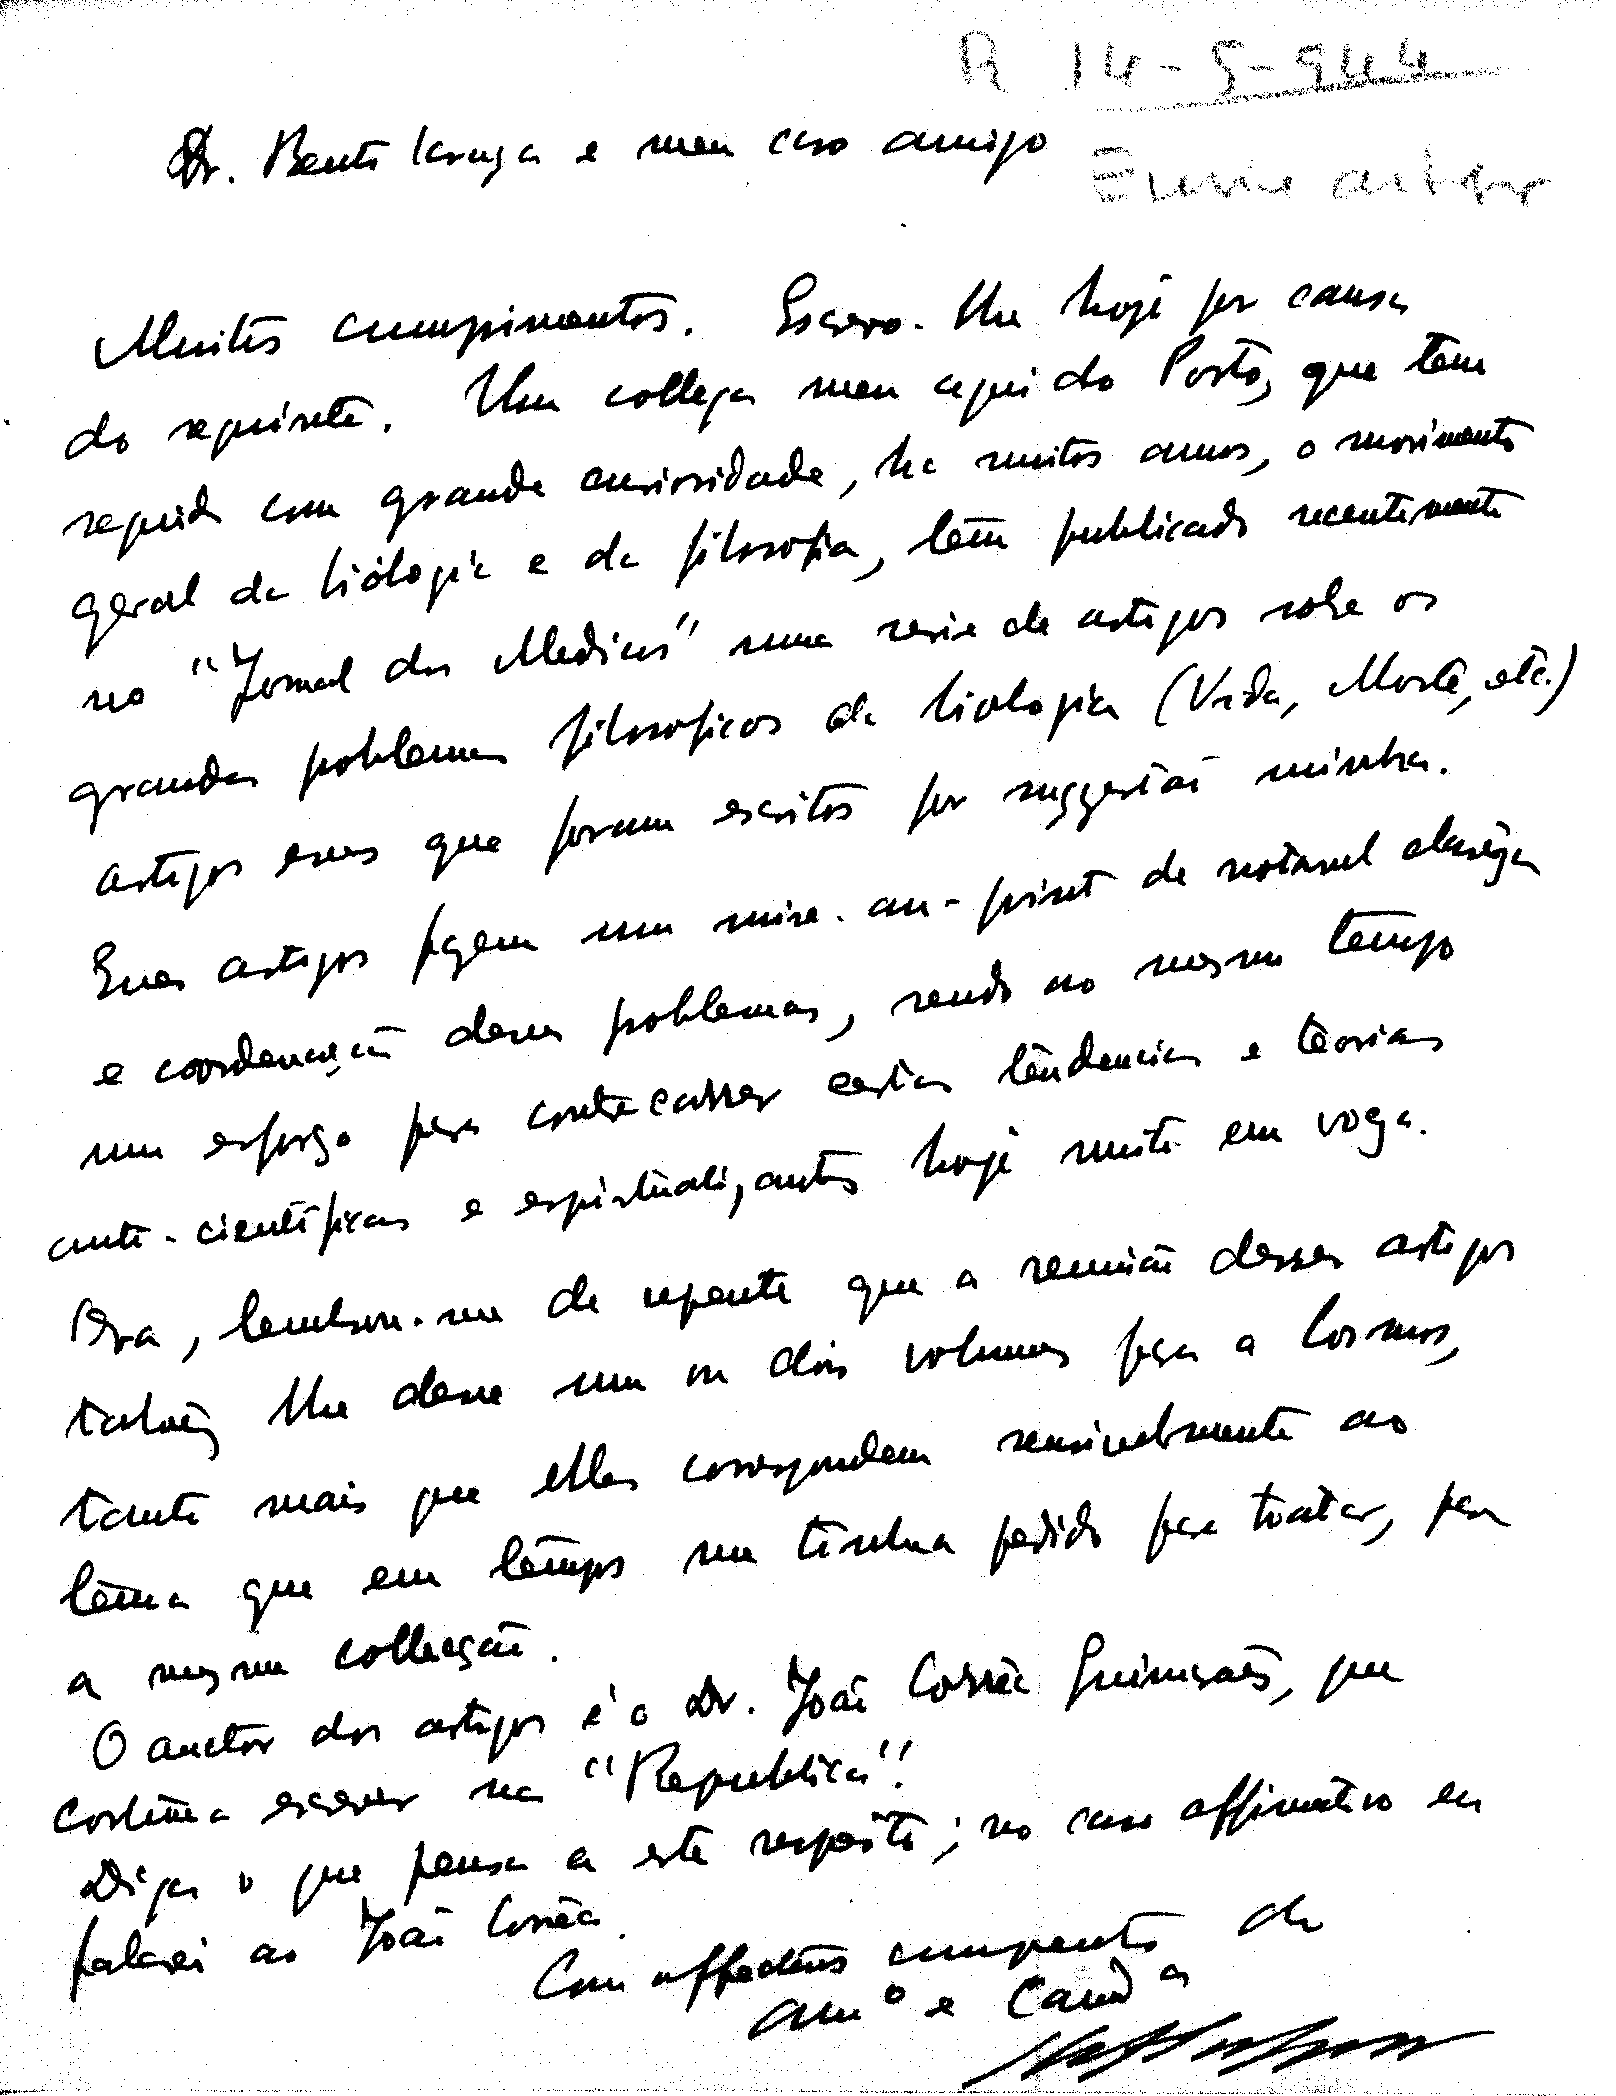 R 14-5-944
Dr. Bento Caraça e meu caro amigo
Envie artigos
Muitos cumprimentos. Escrevo-lhe hoje por causa
do seguinte. Um collega meu aqui do Porto, que tem
seguido com grande curiosidade, ha muitos annos, o movimento
geral da biologia e da filosofia, tem publicado recentemente
no "Jornal dos Medicos" uma serie de artigos sobre os
grandes problemas filosoficos da biologia (Vida, Morte, etc.)
artigos esses que foram escritos por suggestão minha.
Esses artigos fazem um mise-au-point de notavel clareza
e coordenação desses problemas, sendo ao mesmo tempo
um esforço para contrecarrer certas tendencias e teorias
anti-cientificas e espiritualizantes hoje muito em voga.
Ora, lembrou-me de repente que a reunião desses artigos
talvez lhe desse um ou dois volumes para a Cosmos,
tanto mais que elles correspondem sensivelmente ao
tema que em tempos me tinha pedido para tratar, para
a mesma collecção.
O auctor dos artigos é o Dr. João Corrêa Guimarães, que
costuma escrever na "Republica".
Diga o que pensa a este respeito; no caso affirmativo eu
falarei ao João Corrêa.
Com affectuosos cumprimentos do
am.º e Camª